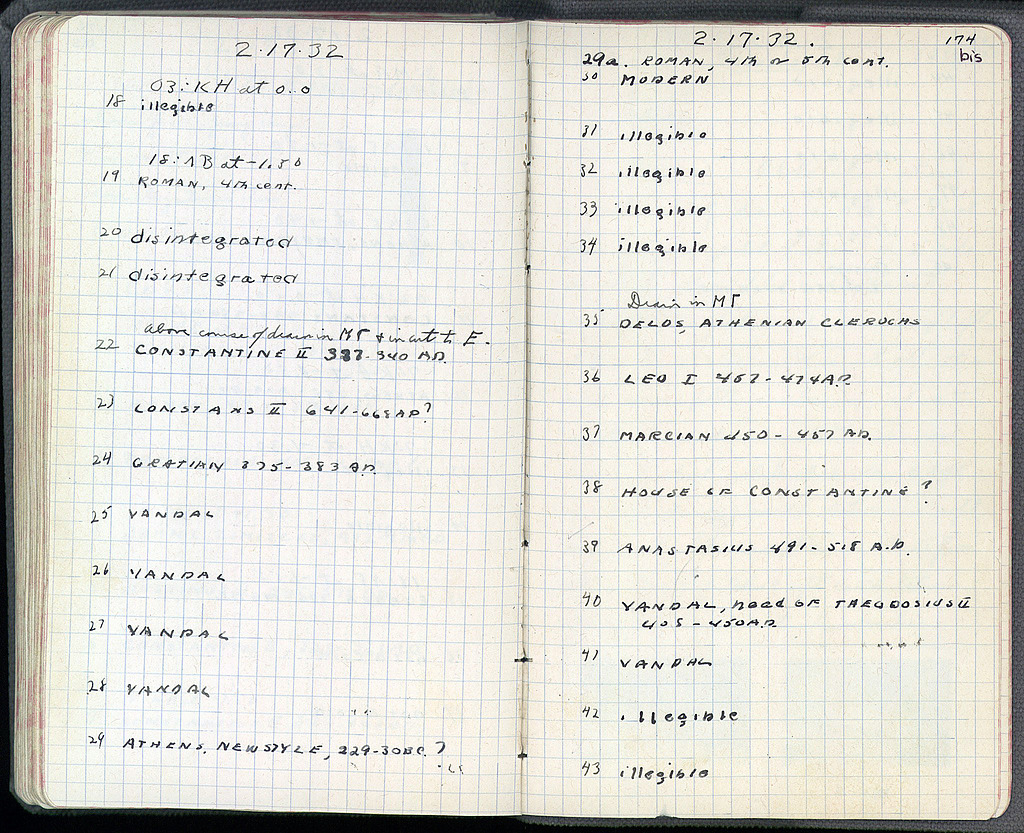 2·17·32
03:KH at 0.0
18 illegible
at -1.50
19 ROMAN, 4th cent.
20 disintegrated
21 disintegrated
above course of drain in MΓ & in cut to E.
22 CONSTANTINE II 337-340 AD.
23 CONSTANS II 641-668 AD?
24 GRATIAN 375-383 AD.
25 VANDAL
26 VANDAL
27 VANDAL
28 VANDAL
29 ATHENS, NEW STYLE, 229-30 BC.?
2·17·32.
174
bis
29a. ROMAN, 4th or 5th cent.
30 MODERN
31 illegible
32 illegible
33 illegible
34 illegible
Drain in MΓ
35 DELOS, ATHENIAN CLERUCHS
36 LEO I 457-474 AD.
37 MARCIAN 450-457 AD.
38 HOUSE OF CONSTANTINE?
39 ANASTASIUS 491-518 A.D.
40 VANDAL, head OF THEODOSIUS II
408-450 AD.
41 VANDAL
42 illegible
43 illegible